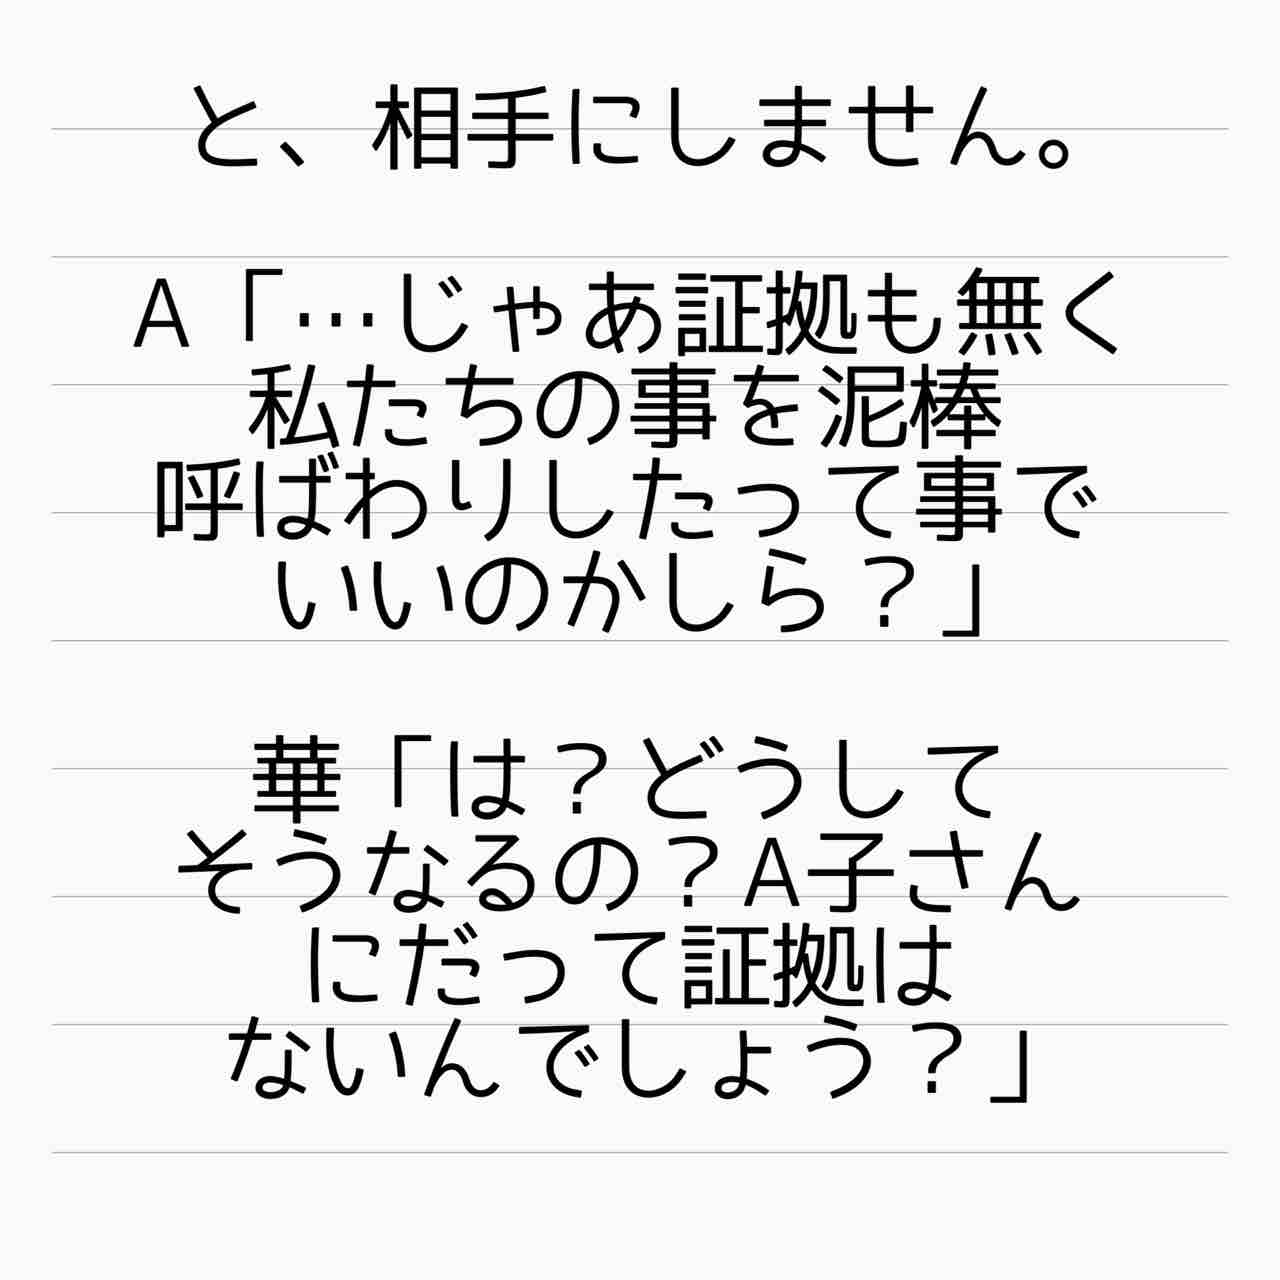 と、相手にしません。
A「…じゃあ証拠も無く
私たちの事を泥棒
呼ばわりしたって事で
いいのかしら？」
華「は？どうして
そうなるの？A子さん
にだって証拠は
ないんでしょう？」